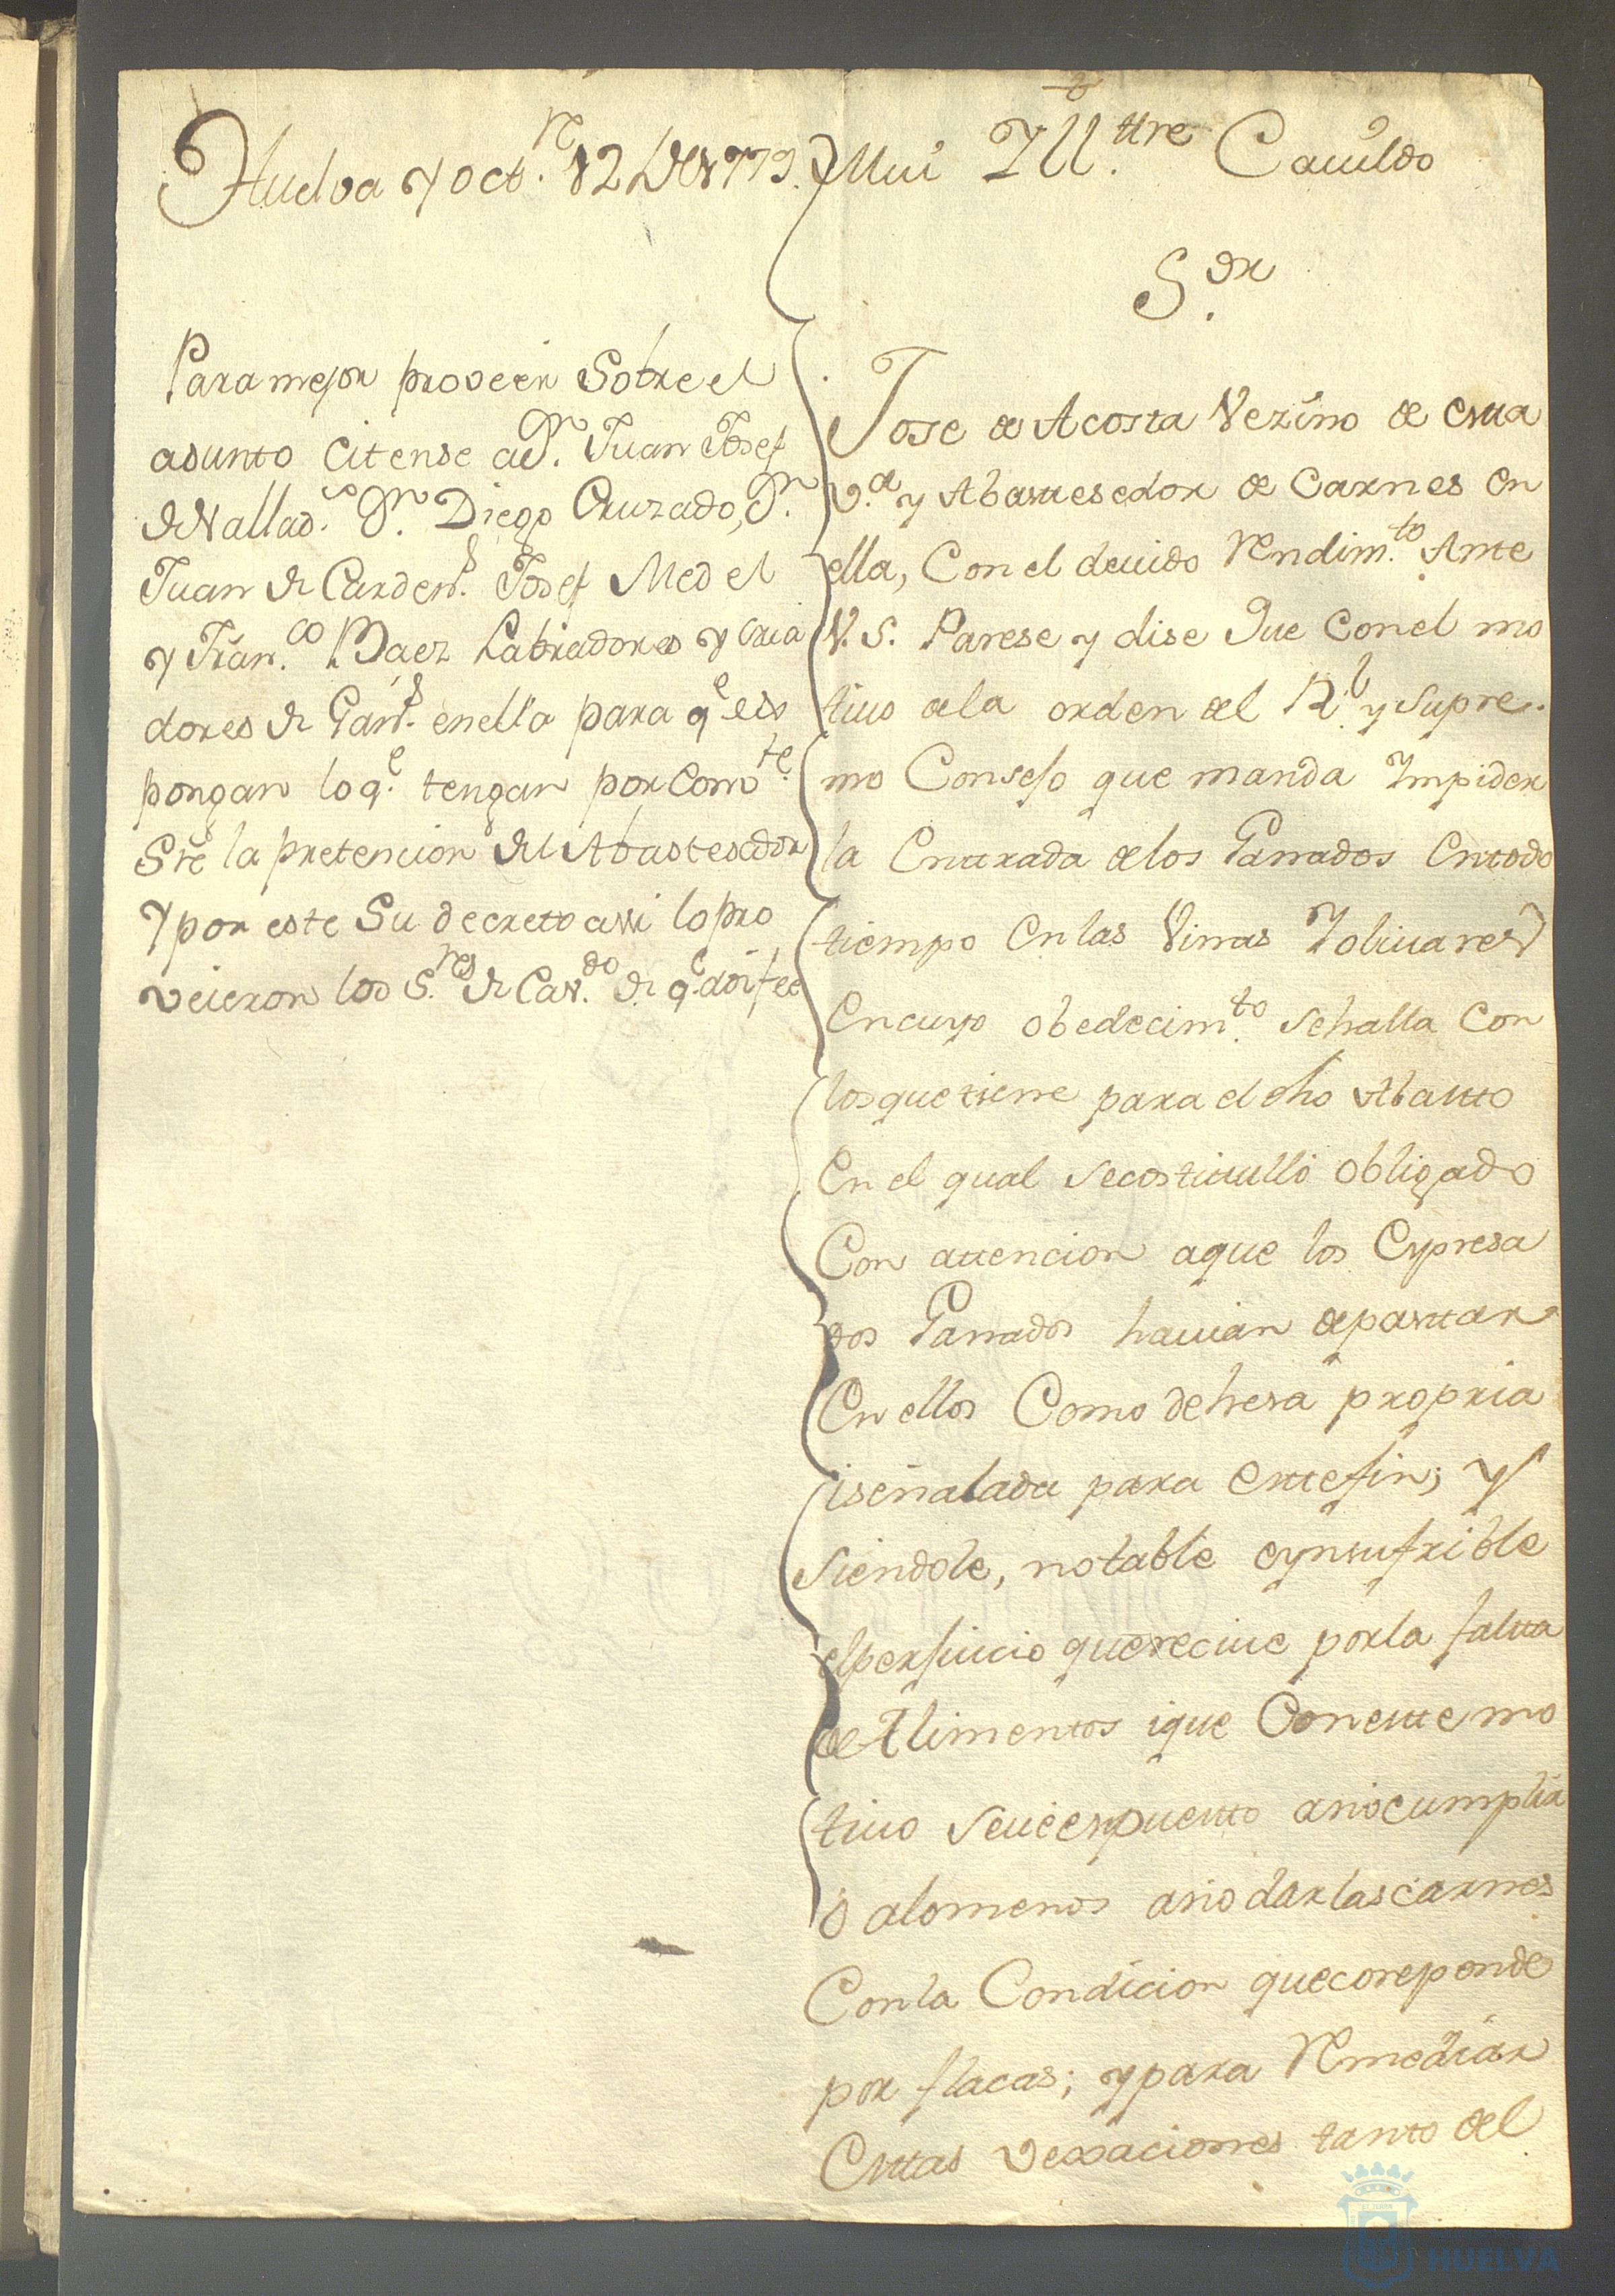 Huelva y oct.re 12 de 1779.
Para mejor proveér Sobre el
asunto Citense a D.n Juan Josef
de Vallad.s D.n Diego Cruzado, D.n
Juan de Carden.s Josef Medel
y Fran.co Baez Labradores y Cria
dores de Gan.s en ella para q.e es
pongan lo q.e tengan por Com.te
Sre la pretencion del Abastesedor
Y por este Su decretto assi lo pro
veieron los S.res de Cav.do de q.e doi fee
Mui Ill.ttre Cauildo
S.or
Jose de Acosta Vezino de esta
V.a y Abastesedor de Carnes en
ella, Con el deuido Rendim.to Ante
V. S. Parese y dise Que Con el mo
tiuo de la orden del R.l y Supre.
mo Consejo que manda Impider
la Entrada de los Ganados En todo
tiempo En las Viñas Y oliuares
En cuyo obedecim.to se halla Con
los que tiene para el dho Abasto
En el qual se costituulló obligado
Con attencion a que los Expresa
dos Ganados hauian de pastar
En ellos Como dehesa propria
i señalada para este fin; y
siendole, notable e ynsufrible
el perjuicio que reciue por la falta
de Alimentos i que Con este mo
tiuo se ue espuesto a no cumplir
ó alomenos a no dar las carnes
Con la Condicion que corepende
por flacas; y para Remediar
Estas vexaciones tanto del
HUELVA